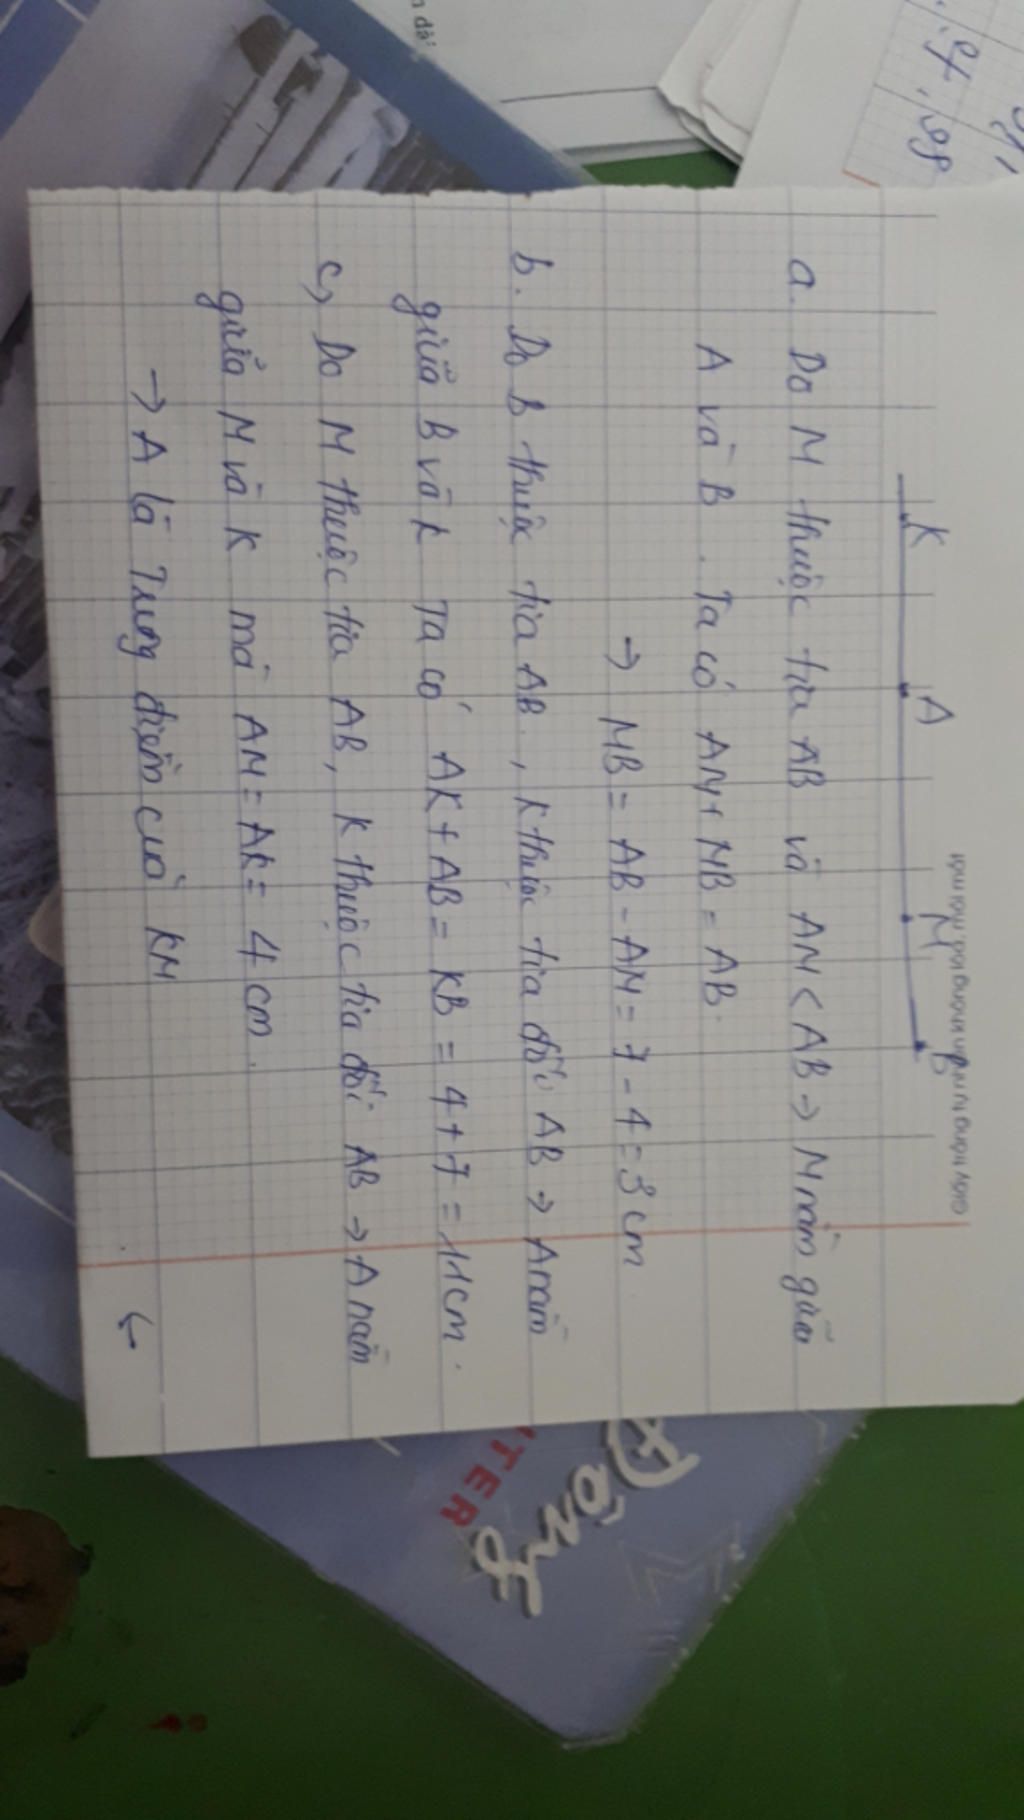 K A M B
a. Do M thuộc tia AB và AM < AB → M nằm giữa
A và B. Ta có AM + MB = AB.
→ MB = AB - AM = 7 - 4 = 3 cm
b. Do B thuộc tia AB, K thuộc tia đối AB → A nằm
giữa B và K Ta có AK + AB = KB = 4 + 7 = 11 cm.
c, Do M thuộc tia AB, K thuộc tia đối AB → A nằm
giữa M và K mà AM = AK = 4 cm.
→ A là Trung điểm của KM
Đông
TER